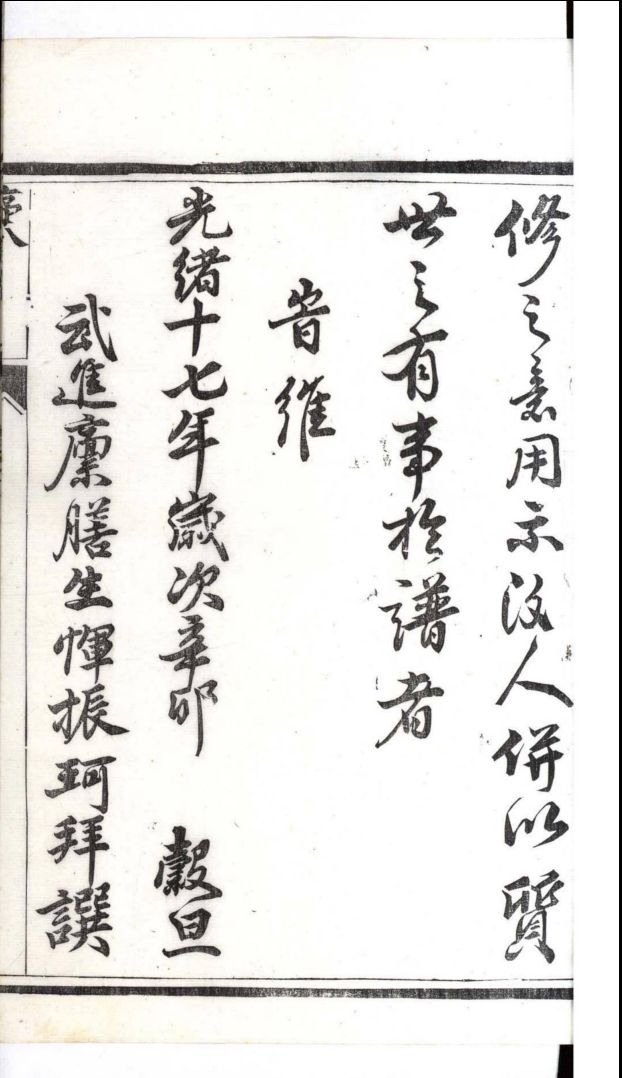 修之意用示後人併以質
世之有事於譜者
旹維
光緒十七年歲次辛卯 穀旦
武進廩膳生惲振珂拜譔